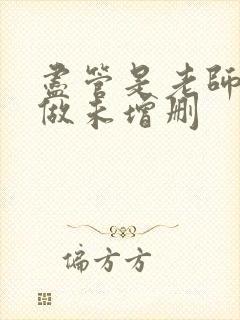 盡管是老師
做末增刪
偏方方